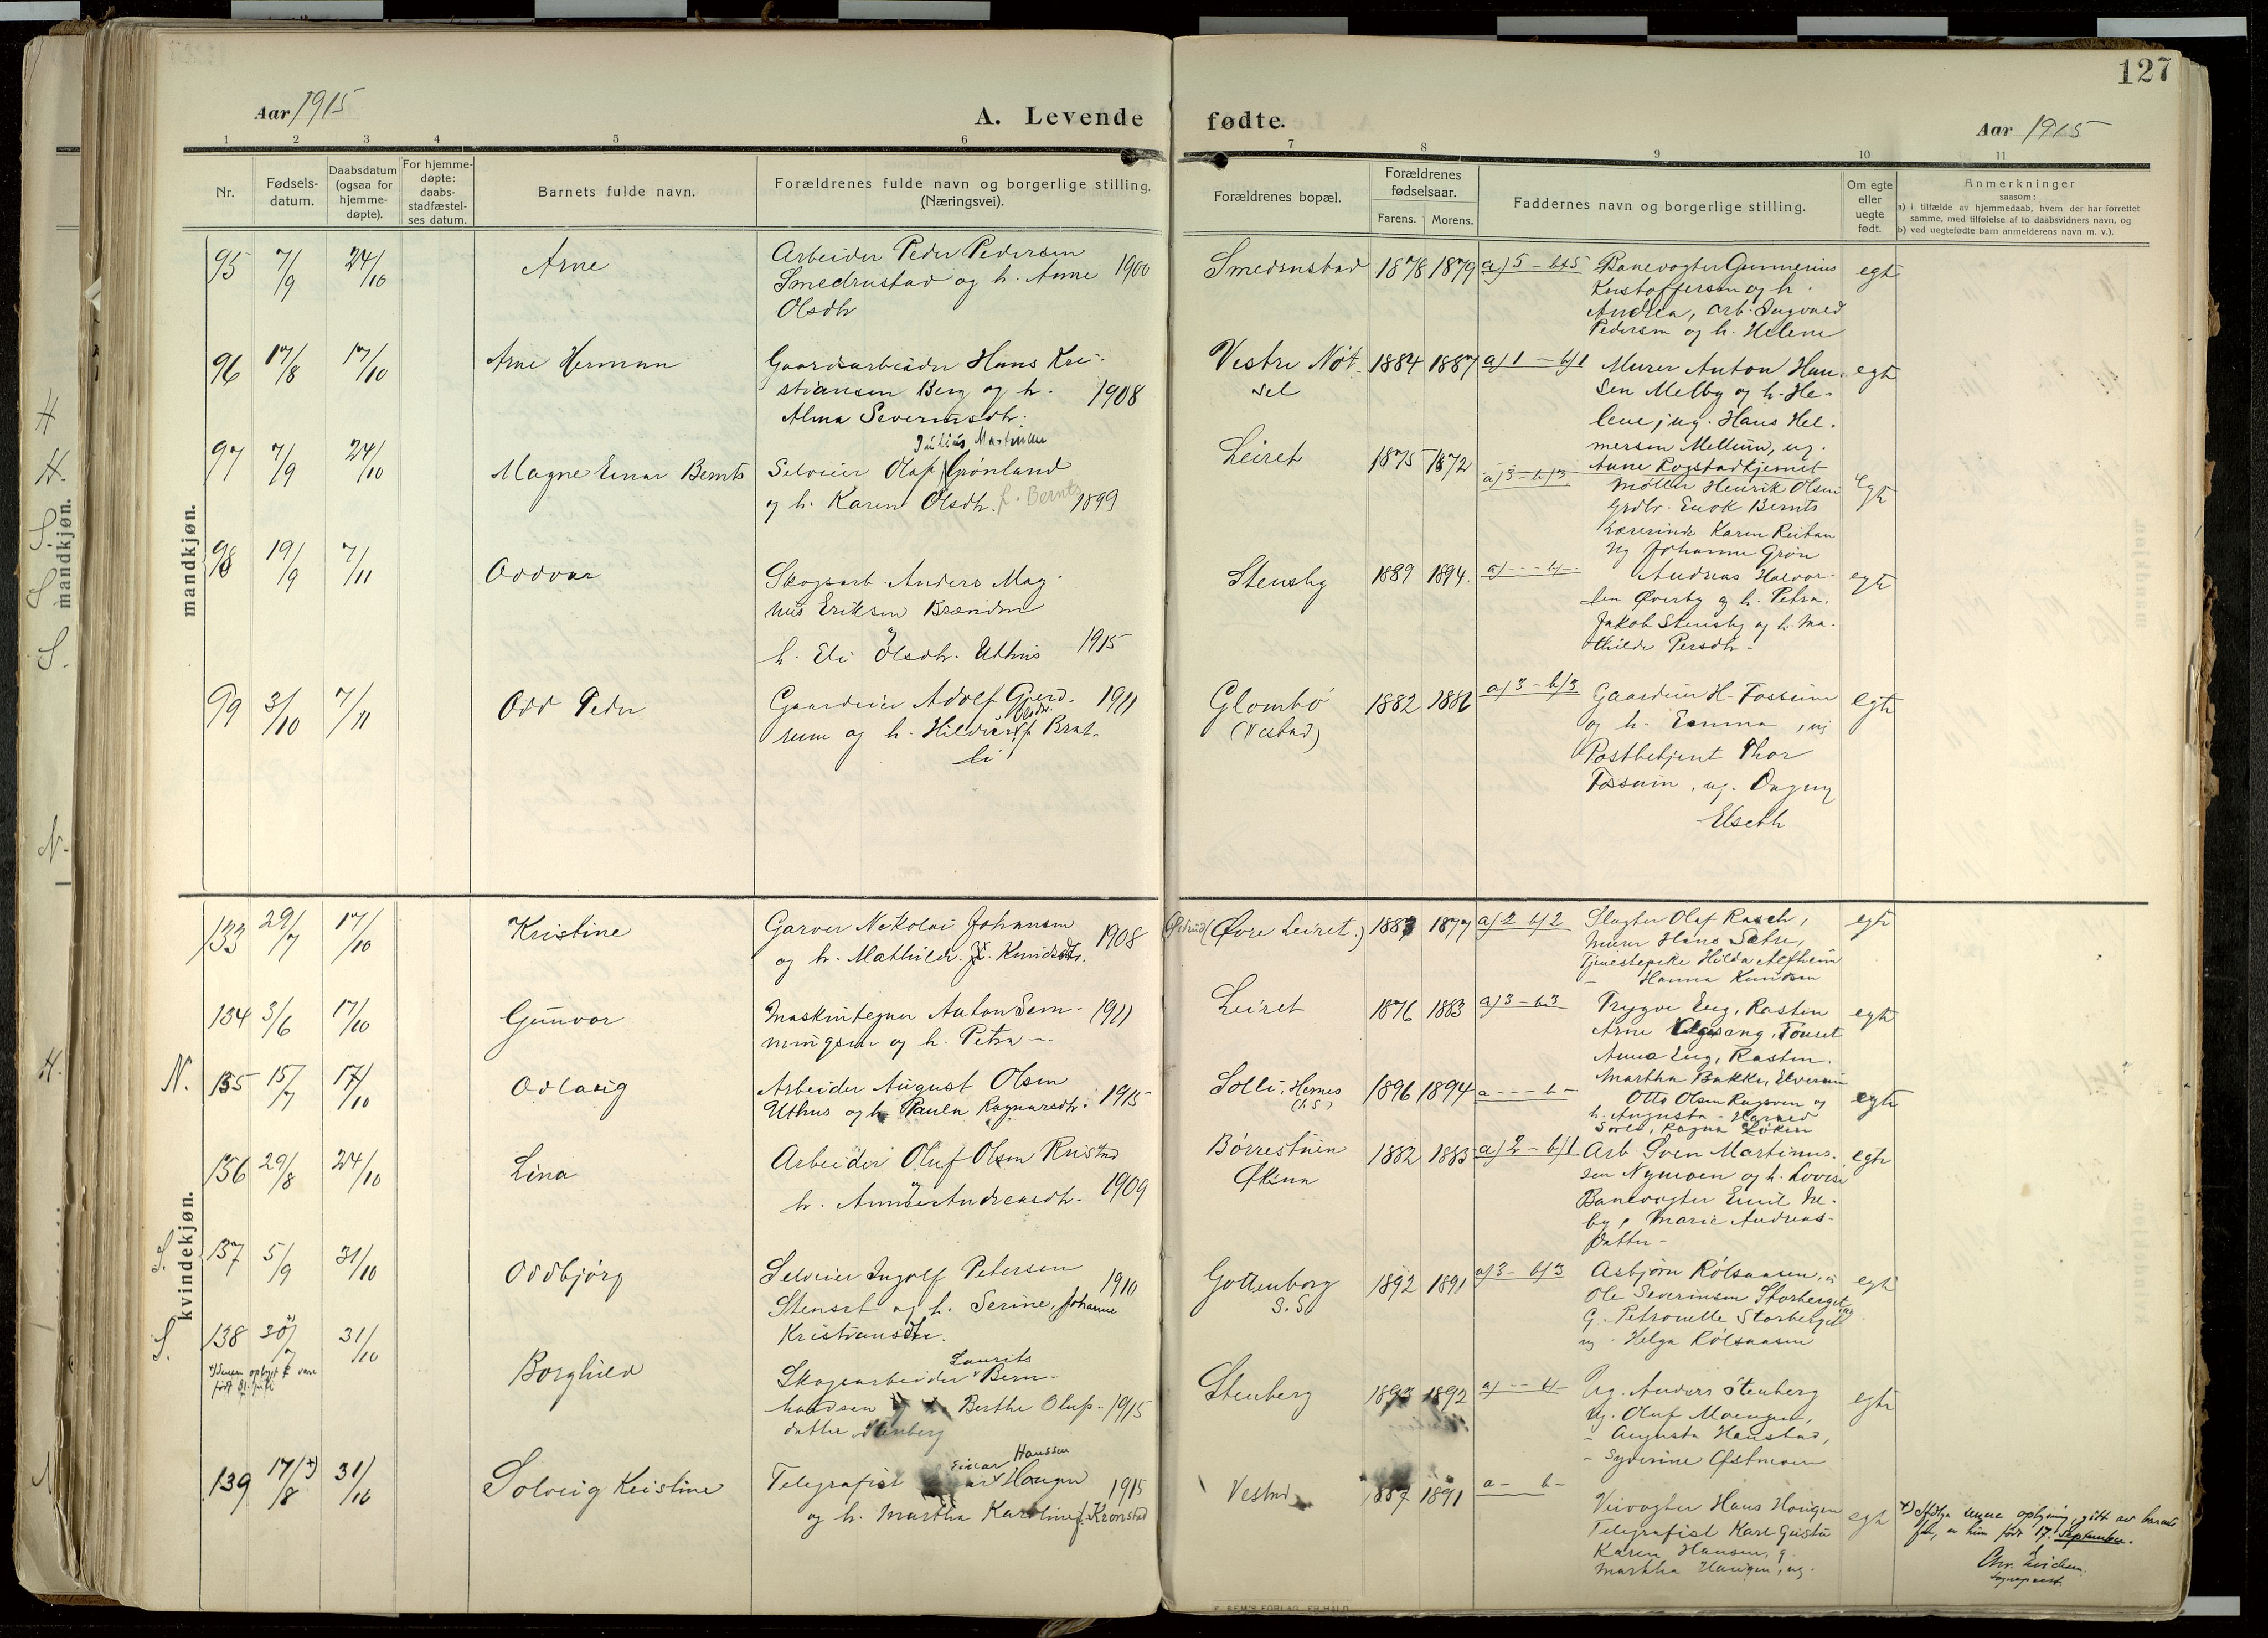 127
Aar 1915
A. Levende
fødte.
Aar 1915
1 2 3 4 5 6 7 8 9 10 11
Nr.
Fødsels-
datum.
Daabsdatum
(ogsaa for
hjemme-
døpte).
For hjemme-
døpte:
daabs-
stadfæstel-
ses datum.
Barnets fulde navn.
Forældrenes fulde navn og borgerlige stilling.
(Næringsvei).
Forældrenes bopæl.
Forældrenes
fødselsaar.
Farens. Morens.
Faddernes navn og borgerlige stilling.
Om egte
eller
uegte
født.
Anmerkninger
saasom:
a) i tilfælde av hjemmedaab, hvem der har forrettet
samme, med tilføielse af to daabsvidners navn, og
b) ved uegtefødte barn anmelderens navn m. v.).
mandkjøn.
mandkjøn.
95 7/9 24/10 Arne
Arbeider Peder Pedersen
Smedrustad og h. Anne 1900
Olsdtr
Smedrustad 1878 1879 a) 5 - b) 5
Banevogter Gunnerius
Kristoffersen og h.
Andrea, arb. Ingvald
Pedersen og h. Helene
egte
96 17/8 17/10 Arne Herman
Gaardsarbeider Hans Kri-
stiansen Berg og h. 1908
Alma Severinsdtr.
Vestre Nøt-
sel
1884 1887 a) 1 - b) 1
Murer Anton Han-
sen Melby og h. He-
lene, ug. Hans Hel-
mersen Mellum, ug.
Anne Rogstadkjernet
egte
97 7/9 24/10 Magne Einar Bernts
Julius Martinius
Selveier Olaf Grønland
og h. Karen Olsdtr. f. Bernts 1899
Leiret 1875 1872 a) 3 - b) 3
Møller Henrik Olsen
Grdbr. Enok Bernts
Lærerinde Karen Reitan
ug Johanne Grøn
egte
98 19/9 7/11 Oddvar
Skogsarb. Anders Mag-
nus Eriksen Brænden
og
h. Eli Olsdtr. Uthus 1915
Stensby 1889 1894. a) - - b) -
Andreas Halvor-
sen Øverby og h. Petra.
Jakob Stensby og h. Ma-
thilde Persdtr.
egte
99 3/10 7/11 Odd Peder
Gaardeier Adolf Gjerd- 1911
Olsdtr.
rum og h. Hildur f. Brat-
li
Glombo
(Vestad)
1882 1886 a) 3 - b) 3
Gaardeier H. Fossum
og h. Emma, ug
Postbetjent Thor
Fossum, ug. Dagny
Elseth
egte
kvindekjøn.
133 29/7 17/10 Kristine
Garver Nikolai Johansen 1908
og h. Mathilde Knudsdtr.
(Øvre Leiret.) 1883 1877 a) 2 b) 2
Slagter Olaf Rasch,
Murer Hans Sætre,
Tjenestepike Hilda Alfheim
- Hanna Knudsen
egte
134 3/6 17/10 Gunvor
Maskintegner Anton Sem- 1911
mingsen og h. Petra -
Leiret 1876 1883 a) 3 - b) 3
Trygve Eng, Rasten
Arne, Tønset
Anna Eng, Rasten.
Martha Bakke, Elverum
egte
N. 135 15/7 17/10 Odlaug
Arbeider August Olsen
Uthus og h. Paula Ragnarsdtr. 1915
Solli, Hernes
(h.S.)
1896 1894 a - - b -
Otto Olsen og
h. Augusta - Harald
, Ragna Løken
egte
136 29/8 24/10 Lina
Arbeider Oluf Olsen Rustad
og
h. Anne Andreasdtr. 1909
Børrestuen
Øksna
1882 1883 a) 2 - b) 1
Arb. Sven Martinus-
sen Nymoen og h. Lovise
Banevogter Emil Ne-
by, Marie Andreas-
datter -
egte
S. 137 5/9 31/10 Oddbjørg
Selveier Ingolf Petersen 1910
Stenset og h. Serine Johanne
Kristiansdtr.
Gottenborg
S.S.
1892 1891 a) 3 - b) 3
Asbjørn Rølsaasen, ug
Ole Severinsen Storberget,
G. Petronelle Storberget
ug. Helga Rølsaasen
egte
S. 138 30/7 31/10 Borghild
*) Senere oplyst at være
født 31. juli
Laurits
Skogsarbeider Bern-
hardsen og h. Berthe Olufs- 1915
datter Stenberg
Stenberg 1893 1892 a) - - b) -
Ug. Anders Stenberg
Ug. Oluf Moengen,
- Augusta Hanstad,
- Syverine Østmoen
egte
139 17/8 +) 31/10 Solveig Kristine
Einar Hanssen
Telegrafist Haugen 1915
og h. Martha Karoline f. Kronstad
Vestad 1887 1891 a - b -
Veivogter Hans Haugen
Telegrafist Karl Gustu
Karen Hansen, g.
Martha Haugen, ug.
egte
+) Ifølge senere oplysning, gitt av barnets
far, er hun født 17. september.
Chr. Erichsen.
sogneprest.
E. SEM'S FORLAG, FR.HALD